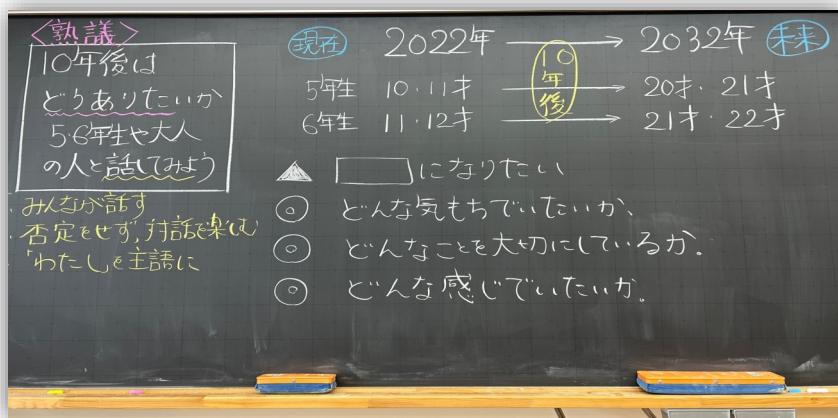 <熟議>
10年後は
どうありたいか
5・6年生や大人
の人と話してみよう
・みんなが話す
・否定をせず,対話を楽しむ
・「わたし」を主語に
現在 2022年 → 2032年 未来
10年後
5年生 10・11才 → 20才・21才
6年生 11・12才 → 21才・22才
▲ □になりたい
◎ どんな気もちでいたいか、
◎ どんなことを大切にしているか。
◎ どんな感じでいたいか。